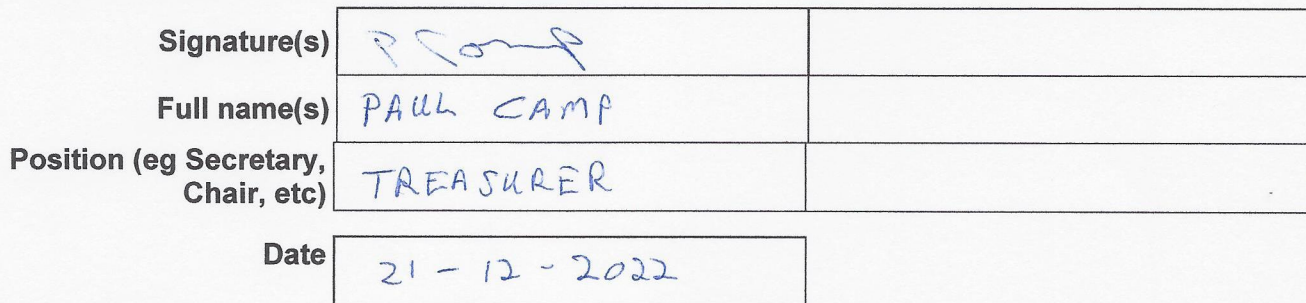 Signature(s) P Camp
Full name(s) PAUL CAMP
Position (eg Secretary,
Chair, etc) TREASURER
Date 21 - 12 - 2022